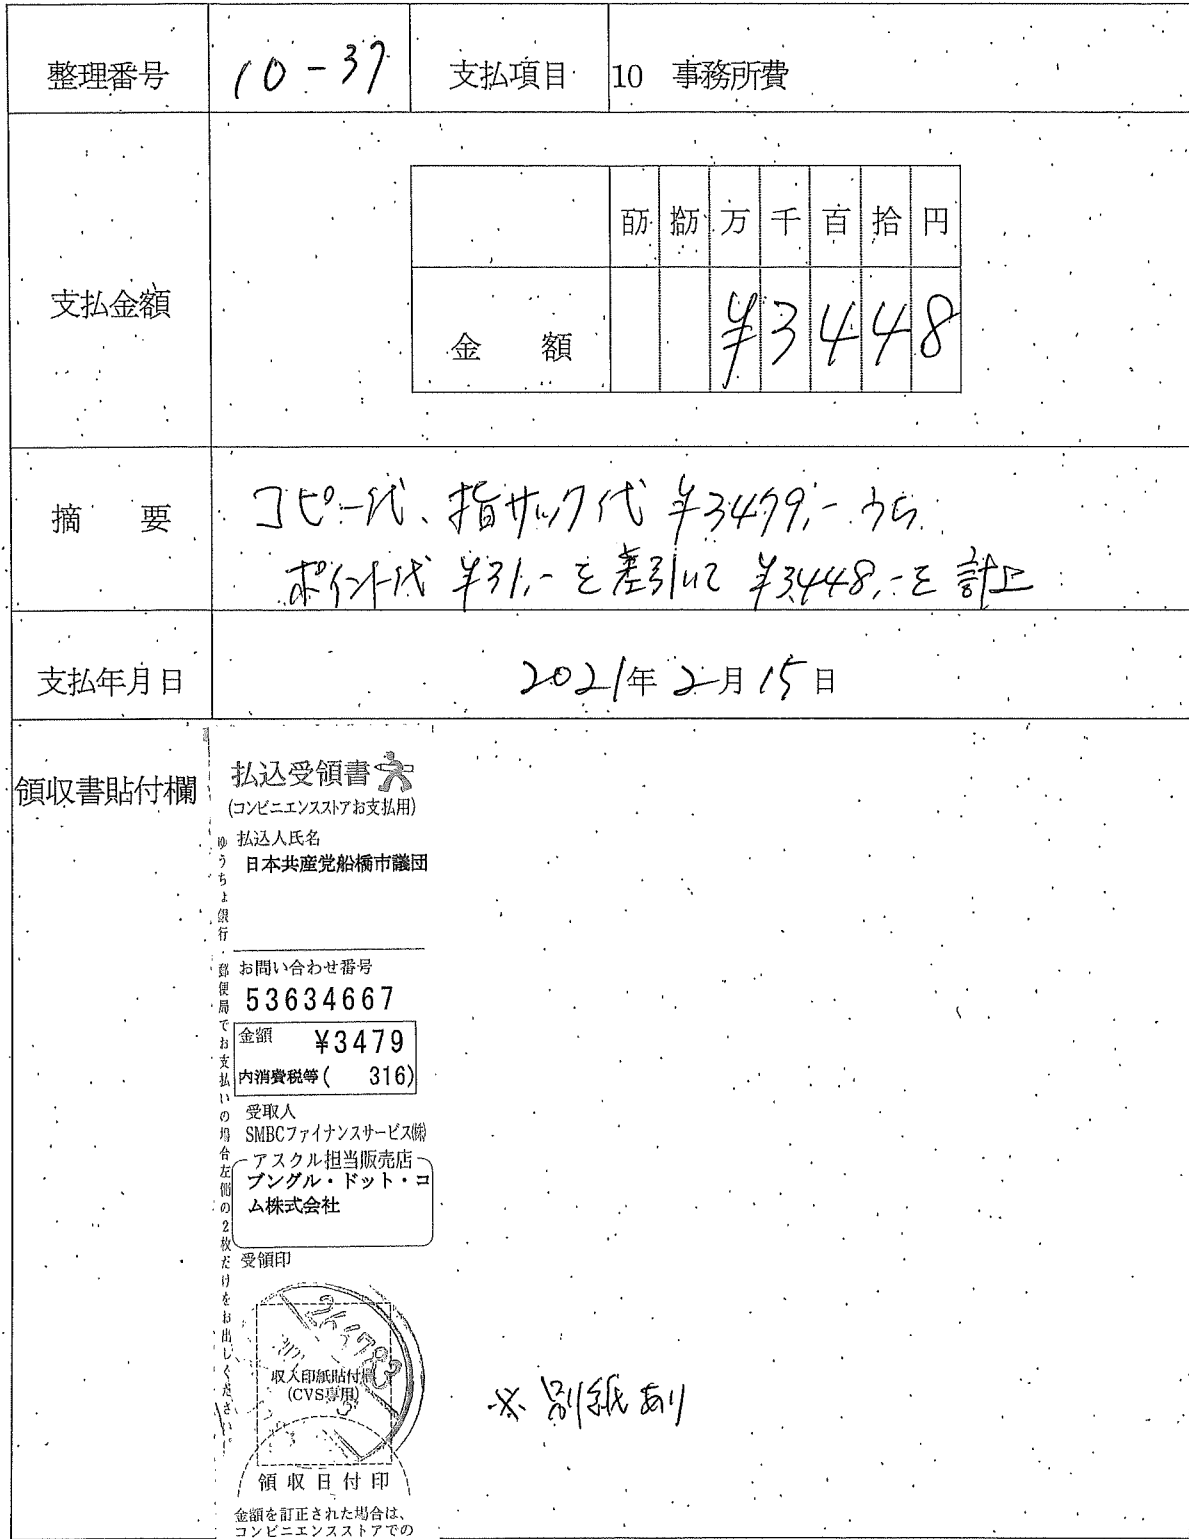 整理番号 10-37 支払項目 10 事務所費
百万 拾万 万 千 百 拾 円
支払金額
金額 ¥3448
摘要 コピー代、指サック代 ¥3479,- うち
ポイント代 ¥31,- を差引いて ¥3,448,-を計上
支払年月日 2021年2月15日
領収書貼付欄
払込受領書
(コンビニエンスストアお支払用)
払込人氏名
日本共産党船橋市議団
お問い合わせ番号
53634667
金額 ¥3479
内消費税等( 316)
受取人
SMBCファイナンスサービス㈱
アスクル担当販売店
ブングル・ドット・コ
ム株式会社
受領印
収入印紙貼付欄
(CVS専用)
領収日付印
金額を訂正された場合は、
コンビニエンスストアでの
ゆうちょ銀行・郵便局でお支払いの場合左側の2枚だけをお出しください。
※ 別紙あり